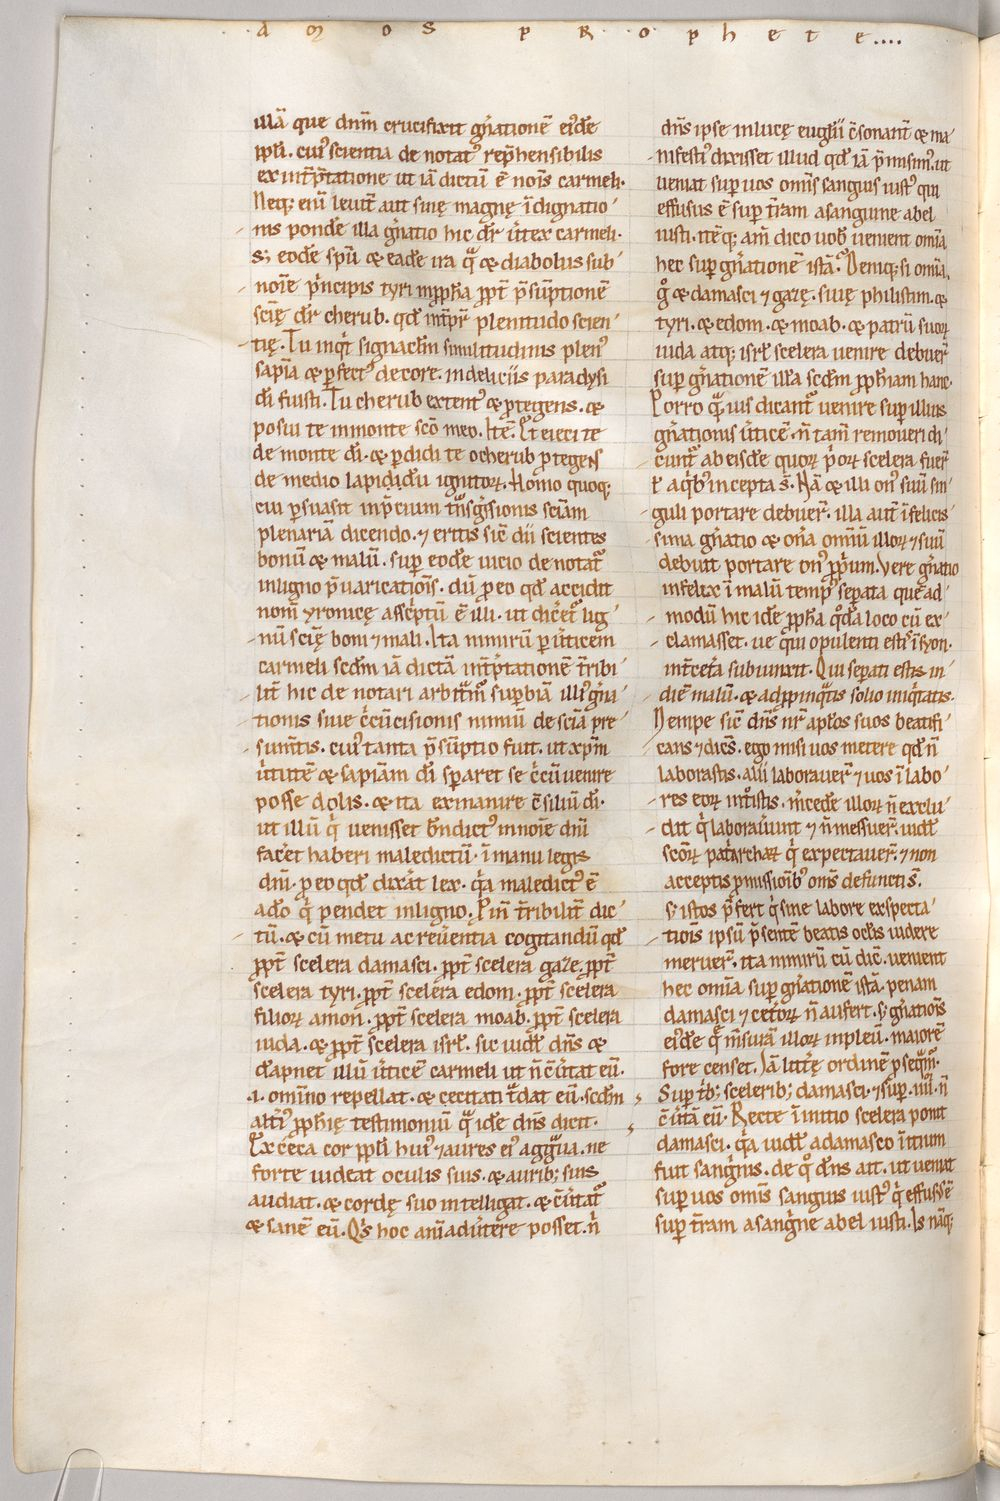 · a m o s p R · o · p h e t e ....
illā que dn̄m crucifixit gn̄atione᷒ ei᷒dē
ppl̄i. cui᷒ scientia de notat᷒ rep̄hensibilis
ex int̄p̄tatione ut iā dictū ē nois̄ carmeli.
Neq; eni᷒ leuit̄ aut siuę magnę īdignatio
nis pond᷒e illa gn̄atio hic dr̄ ūtex carmeli.
S; eodē sp̄u & eadē ira q̄ & diabolus sub
noīe p̄ncipis tyri in pph̄a ppt̄ p̄sūptionē
scīę dr̄ cherub. qd̄ int̄pr̄ plenitudo scien
tię. Tu inq̄t signaclm̄ similitudinis plen᷒
sapīa & p̄fect᷒ decore. in deliciis paradysi
dī fuisti. Tu cherub extent᷒ & p̄tegens. &
posui te in monte sc̄o meo. Itē. Et eieci te
de monte dī. & p̄didi te o cherub p̄tegens
de medio lapidū ignitorꝝ. Homo quoq;
cui p̄suasit in p̄cium tn̄sgs̄sionis sciām
plenariā dicendo. ⁊ eritis sic̄ dii scientes
bonū & malū. sup̄ eodē uicio de notat᷒
in ligno p̄uaricatiois̄. dū p̄ eo qd̄ accidit
nom̄ yronicę asc̄ptū ē illi. ut dic̄et᷒ lig
nū scīę boni ⁊ mali. Ita nimirū p̄ ūticem
carmeli scd̄m iā dictā int̄p̄tationē t̄ribi
lit̄ hic de notari arbitm̄᷒ supb̄iā illi᷒ gn̄a
tionis siue c̄cūcisionis nimiū de sciā pre
sum̄tis. cui᷒ tanta p̄sūptio fuit. ut xp̄m
ūtutē & sapiām dī sp̄aret se c̄cūuenire
posse dolis. & ita exinanire c̄siliū dī.
ut illū q̄ uenisset bn̄dict᷒ in noīe dn̄i
facet haberi maledictū. ī manu legis
dn̄i. p̄ eo qd̄ dixat̄ lex. q̄a maledict᷒ ē
a d̄o q̄ pendet in ligno. Pin̄ t̄ribilit̄ dic
tū. & cū metu ac reūentia cogitandū qd̄
ppt̄ scelera damasci. ppt̄ scelera gazę. ppt̄
scelera tyri. ppt̄ scelera edom. ppt̄ scelera
filiorꝝ amon. ppt̄ scelera moab. ppt̄ scelera
iuda. & ppt̄ scelera isrl̄. sic uidit̄ dn̄s &
d̄apnet illū ūticē carmeli ut n̄ c̄ūtat eū.
.i. omīno repellat. & cecitati t̄dat eū. scd̄m
alti᷒ pph̄ię testimoniū q̄ idē dn̄s dicit.
Exceca cor ppl̄i hui᷒ ⁊ aures ei᷒ aggūa. ne
forte uideat oculis suis. & aurib; suis
audiat. & cordę suo intelligat. & c̄ūtat᷒
& sanē eū. Q᷒s hoc animadūtere posset. n̄
dn̄s ipse in lucę eugl̄ii c̄sonant̄ & ma
nifesti᷒ dixisset illud qd̄ iā p̄misim᷒. ut
ueniat sup̄ uos omīs sanguis iust᷒ qui
effusus ē sup̄ t̄ram a sanguine abel
iusti. Itēq; am̄ dico uob̄ uenient omīa
hec sup̄ gn̄ationē istā. Deniq; si omīa.
g̊ & damasci ⁊ gazę. siuę philistim. &
tyri. & edom. & moab. & patrū suorꝝ
iuda atq; isrl̄ scelera uenire debuer̄
sup̄ gn̄ationē illā scd̄m pph̄iam hanc.
Porro q̄uis dicant᷒ uenire sup̄ illius
gn̄ationis ūticē. n̄ tam̄ remoueri di
cunt᷒ ab eisdē quorꝝ p̄orꝝ scelera fuer̄
t̄ a q̄b᷒ incepta s̄. Nā & illi on᷒ suū sin
guli portare debuer̄. illa aut̄ īfelicis
sima gn̄atio & on̄a omniū illorꝝ ⁊ suū
debuit portare on᷒ pp̄um. Vere gn̄atio
infelix ī malū temp᷒ sep̄ata quēad
modū hic idē pph̄a q̄dā loco cū ex
clamasset. ue q̄ui opulenti esti᷒s ī syon.
int̄ cet̄a subiunxit. Qui sep̄ati estis in
diē malū. & adp̄pinq̄tis solio iniq̄tatis.
Nempe sic̄ dn̄s nr̄ aplōs suos beatifi
cans ⁊ dic̄s. ego misi uos metere qd̄ n̄
laborastis. alii laborauer̄ ⁊ uos ī labo
res eorꝝ int̊istis. m̄cedē illorꝝ n̄ exclu
dit q̄ laborauūnt ⁊ n̄ messuer̄. uidl̄
scōrꝝ patarcharꝝ q̄ expectauer̄. ⁊ non
acceptis p̄missioīb᷒ omīs defuncti s̄.
s; istos p̄fert q̄ sine labore exspecta
tiois̄ ipsū p̄sentē beatis ocl̄is uidere
meruer̄. ita nimirū cū dic̄. uenient
hec omīa sup̄ gn̄ationē istā. penam
damasci ⁊ cet̄orꝝ n̄ aufert. s; gn̄atiois̄
ei᷒dē q̄ m̄surā illorꝝ inpleū. maiorē
fore censet. Jā litt̄ę ordinē p̄seq̄m᷒.
Sup̄ t̄b; scelerib; damasci. ⁊ sup̄ .iiii. n̄
c̄ūtā eū. Recte ī initio scelera ponit
damasci. q̄a uidl̄ a damasco initium
fuit sangn̄is. de q̊ dn̄s ait. ut ueniat
sup̄ uos omīs sanguis iust᷒ q̄ effus᷒ ē
sup̄ t̄ram a sangn̄e abel iusti. Is nāq;